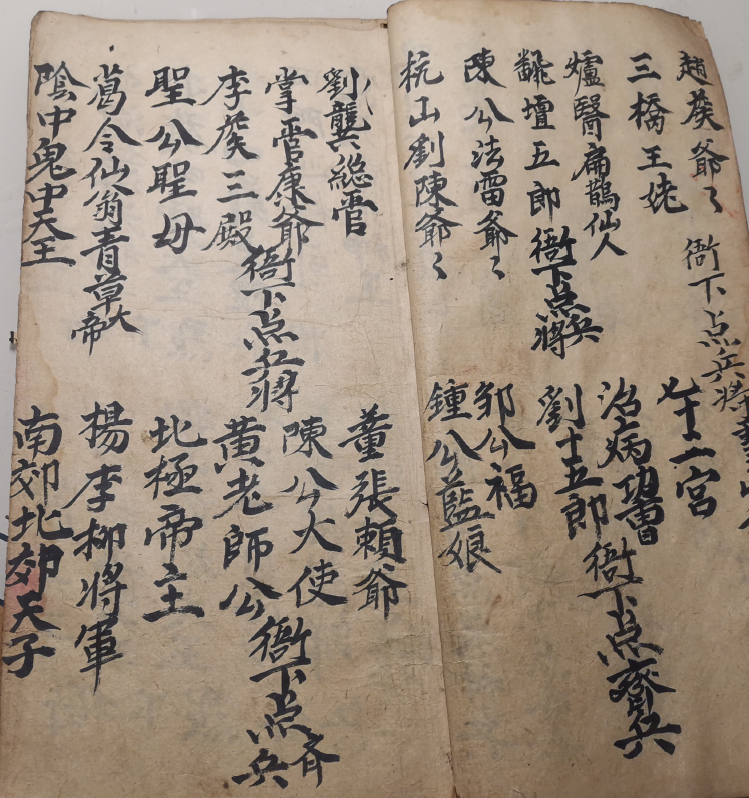 趙侯爺〻
衙下点兵將
三橋王姥
七十二宮
爐醫扁鵲仙人
治病功曹
衙下点齊兵
壇五郎
衙下点兵將
劉十五郎
陳公法雷爺〻
鄒公福
杭山劉陳爺〻
鍾公藍娘
劉龔總管
董張賴爺
掌管康爺
衙下点兵將
陳公大使
李侯三殿
黄老師公
衙下点齐兵
聖公聖母
北極帝主
葛令仙翁青草大帝
楊李柳將軍
陰中鬼中天王
南郊北郊天子